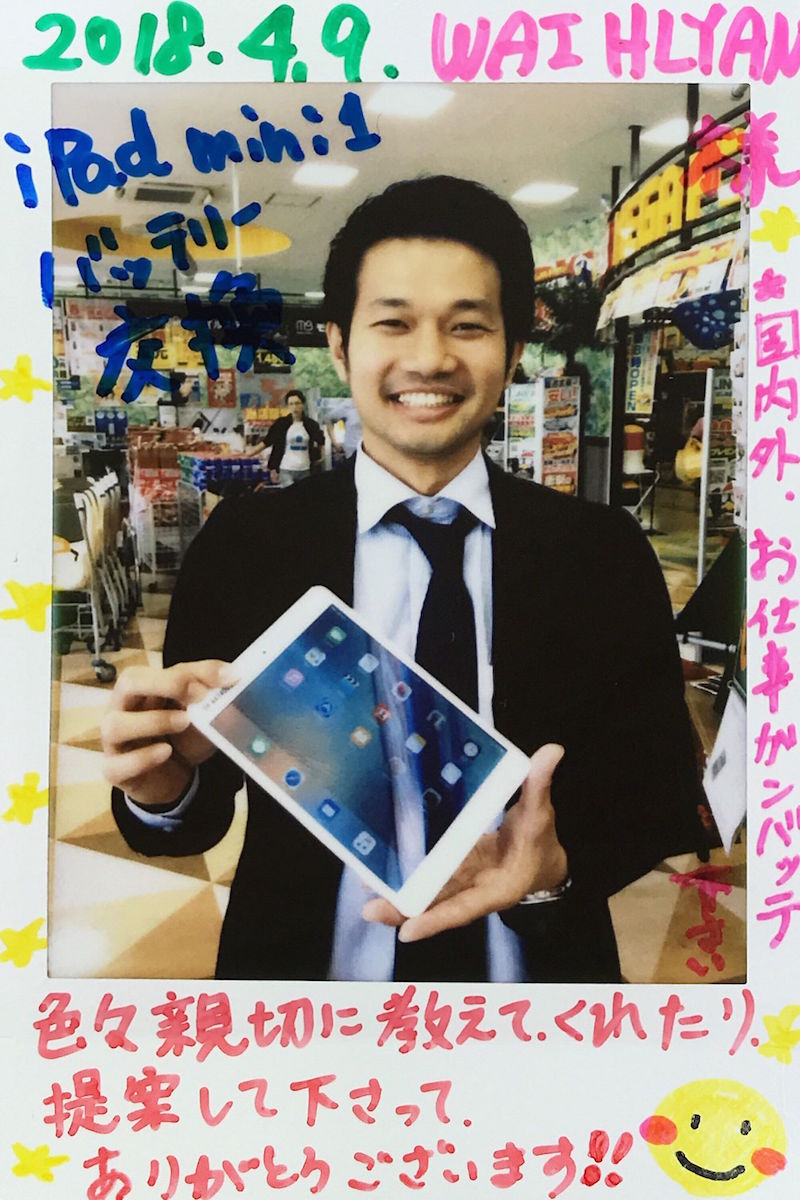 2018.4.9. WAI HLYAN
様
iPad mini1
バッテリー
交換
*国内外.お仕事がンバッテ
下さい
OPEN
色々親切に教えてくれたり.
提案して下さって.
ありがとうございます!!